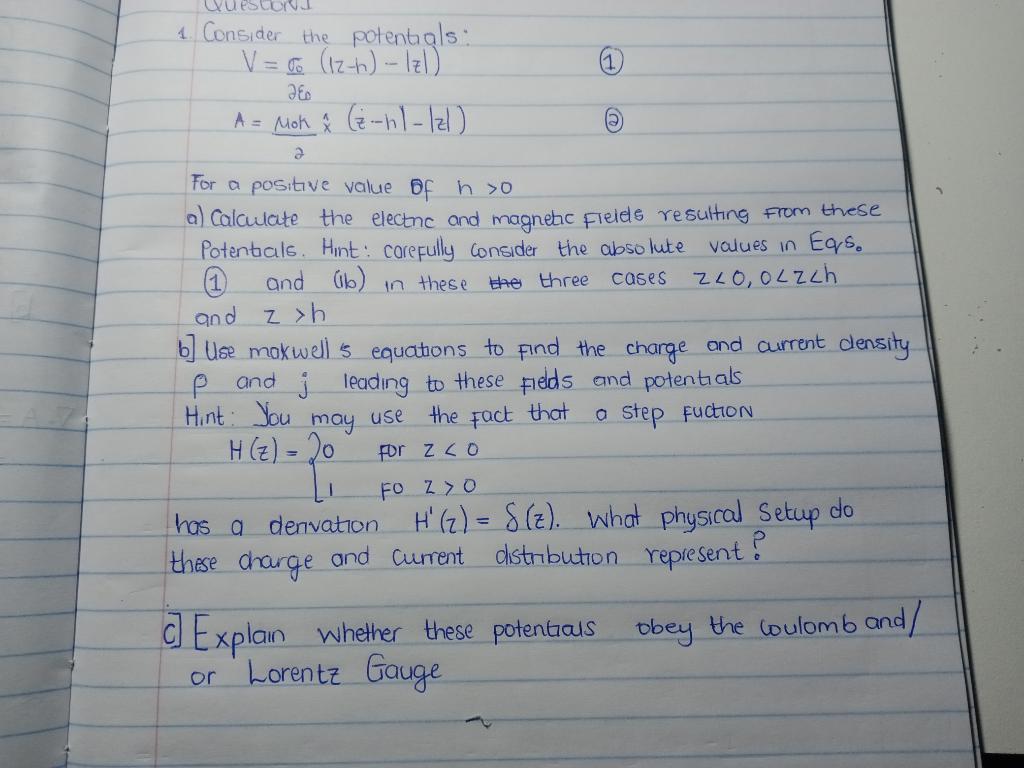 Question 1
1. Consider the potentials:
V = σ₀ (|z-h) - |z|) ①
2ε₀
A = μ₀h x̂ (z-h| - |z|) ②
2
For a positive value of h >0
a) Calculate the electric and magnetic fields resulting from these
Potentials. Hint: carefully consider the absolute values in Eqs.
① and (1b) in these the three cases z<0, 0<z<h
and z >h
b] Use maxwell's equations to find the charge and current density
ρ and j leading to these fields and potentials
Hint: You may use the fact that a step fuction
H(z) = {0 for z < 0
1 fo z > 0
has a derivation H'(z) = δ(z). What physical setup do
these charge and current distribution represent?
c] Explain whether these potentials obey the coulomb and/
or Lorentz Gauge